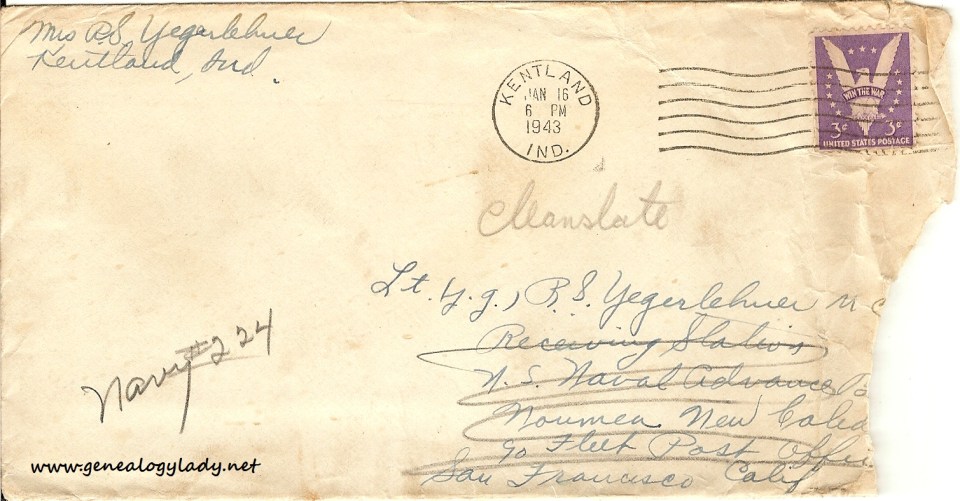 Mrs R.S. Yegerlehner
Kentland, Ind.
KENTLAND
JAN 16
6 PM
1943
IND.
WIN THE WAR
3¢ 3¢
UNITED STATES POSTAGE
Lt. (j.g.) R.S. Yegerlehner M C
Receiving Station
U.S. Naval Advance Ba
Noumea New Caled
c/o Fleet Post Offi
San Francisco Calif
Navy #224
www.genealogylady.net